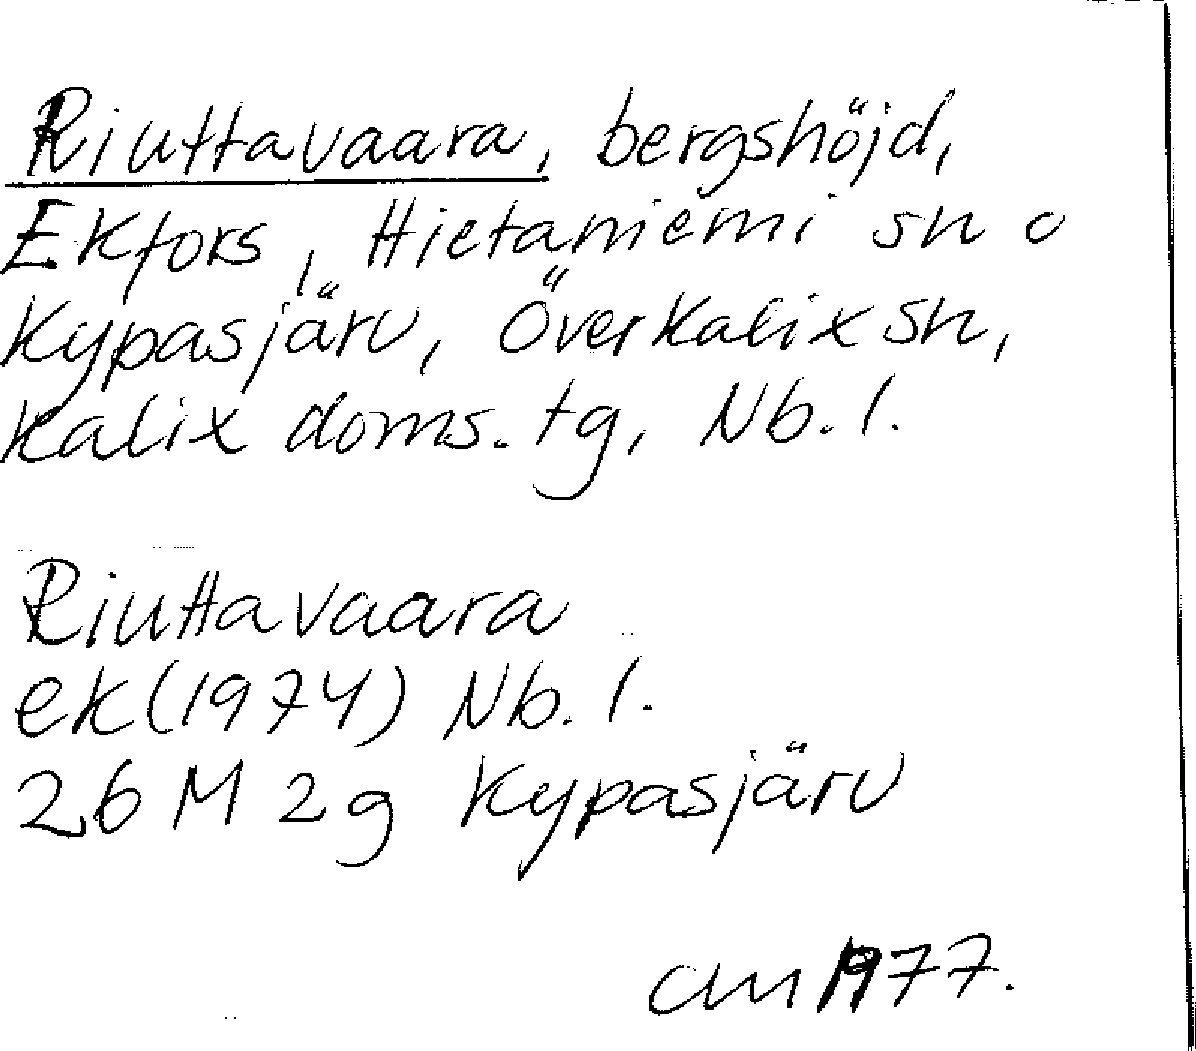 Riuttavaara, bergshöjd,
Ekfors, Hietaniemi sn o
Kypasjärv, Överkalix sn,
Kalix doms. tg, Nb. l.
Riuttavaara
ek (1974) Nb. l.
26 M 2g Kypasjärv
1977.